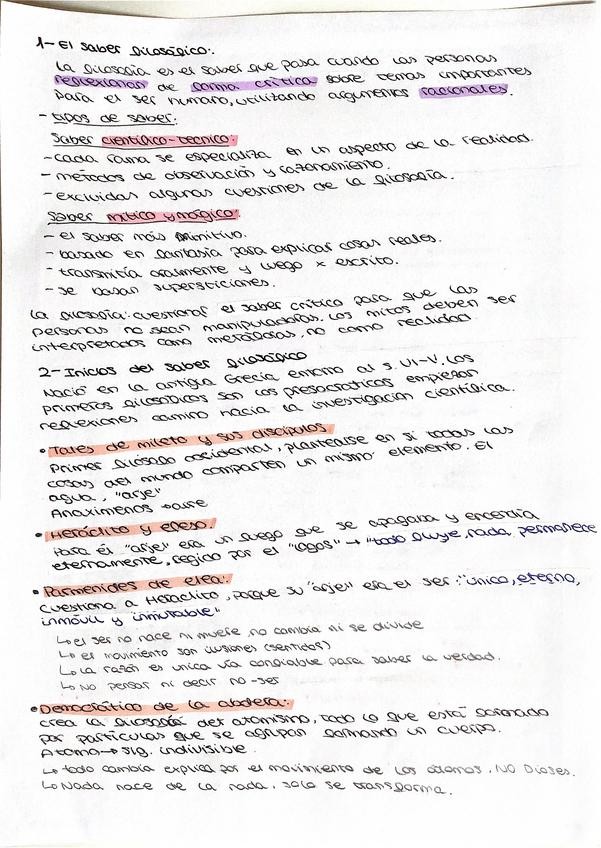 1- El saber filosófico:.
La filosofía es el saber que pasa cuando las personas
reflexionas de forma crítica sobre temas importantes
para el ser humano, utilizando argumentos racionales.
- tipos de saber:
Saber científico-técnico:
- cada rama se especializa en un aspecto de la realidad.
- métodos de observación y razonamiento.
- excluidas algunas cuestiones de la filosofía.
Saber mítico y mágico:
- el saber más primitivo.
- basado en fantasía para explicar cosas reales.
- transmitía oralmente y luego x escrito.
- se basan supersticiones.
La filosofía: cuestionar el saber crítico para que las
personas no sean manipuladoras. Los mitos deben ser
interpretados como metáforas, no como realidad
2- Inicios del saber filosófico
Nació en la antigua Grecia entorno al s. VI-V. Los
primeros filosóficos son los presocráticos empiezan
reflexiones camino hacia la investigación científica.
• Tales de mileto y sus discípulos.
Primer filósofo occidental, plantearse en si todas las
cosas del mundo comparten un mismo elemento. El
agua, "arje"
Anaxímenes → aire
• Heráclito y efeso.
Para él "arje" era un fuego que se apagaba y encendía
eternamente, regido por el "logos" → "todo fluye, nada permanece
• Parmenides de elea:.
Cuestiona a Heráclito, porque su "arje" era el ser: "único, eterno,
inmóvil y inmutable"
↳ el ser no nace ni muere no cambia ni se divide
↳ el movimiento son ilusiones (sentidos)
↳ La razón es unica vía confiable para saber la verdad.
↳ No pensar ni decir no-ser
• Democrático de la abdera:.
crea la filosofía del atomismo, todo lo que está formado
por partículas que se agrupan formando un cuerpo.
Atomo → sig. indivisible.
↳ todo cambia explica por el movimiento de los átomos, NO Dioses.
↳ Nada nace de la nada, solo se transforma.